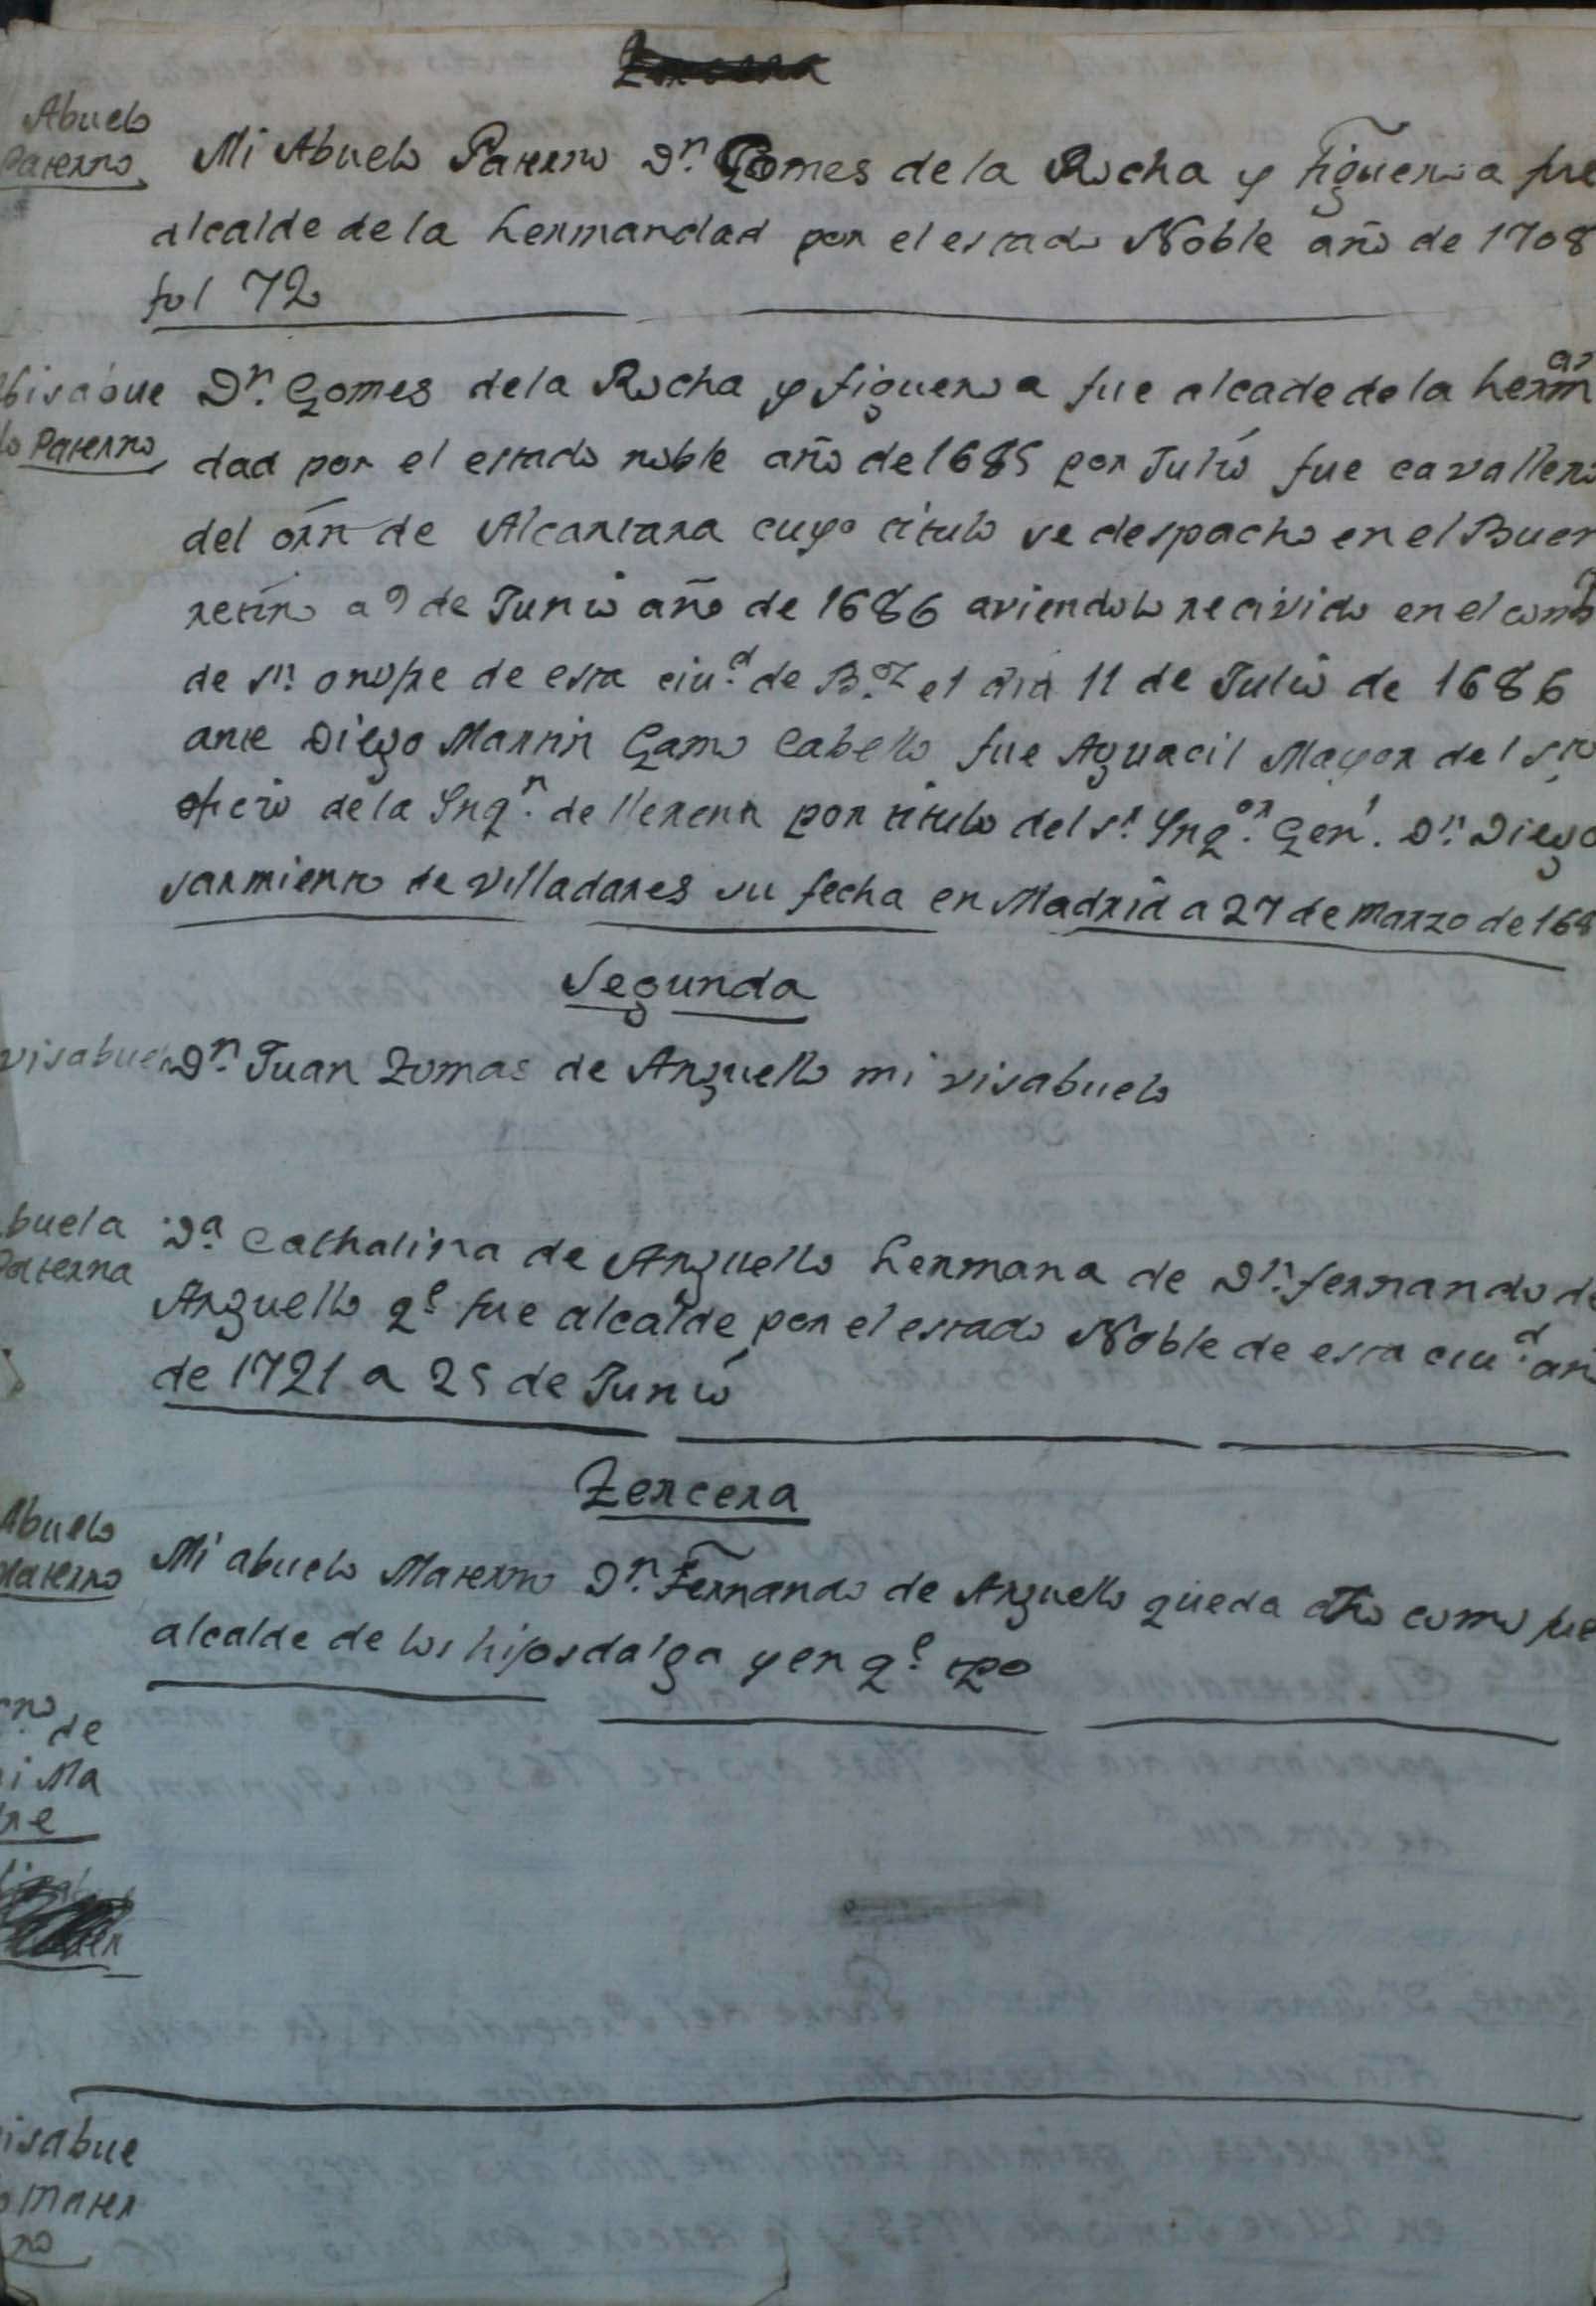 Abuelo
Paterno
Mi Abuelo Paterno Dn. Gomes de la Rocha y Figueroa fue
alcalde de la hermandad por el estado Noble año de 1708
fol 72
bisabue
lo Paterno
Dn. Gomes dela Rocha y figueroa fue alcade de la herman
dad por el estado noble año de 1685 por Julio fue cavallero
del orn de Alcantara cuyo titulo se despacho en el Buen
retiro a 9 de Junio año de 1686 aviendolo recivido en el combto
de sn. onofre de esta ciud. de B.oz el dia 11 de Julio de 1686
ante Diego Martin Gamo Cabello fue Aguacil Mayor del sto
oficio de la Inqn. de llerena por titulo del sr. Inqor. Genl. Dn. Diego
sarmiento de villadares su fecha en Madrid a 27 de marzo de 168
Segunda
visabuelo
Dn. Juan Zomas de Arguello mi visabuelo
buela
Paterna
Da. Cathalina de Arguello hermana de Dn. fernando de
Arguello qe. fue alcalde por el estado Noble de esta ciud. añ
de 1721 a 25 de Junio
Zercera
Abuelo
Materno
Mi abuelo Materno Dn. Fernando de Arguello queda dho como fue
alcalde de los hijosdalga y en qe. tpo
de
i Ma
re
isabue
o mater
no